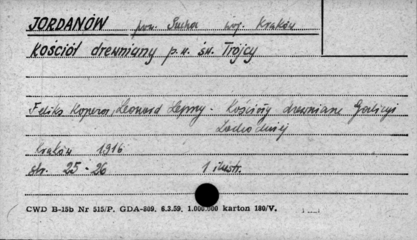 JORDANÓW pow. Sucha woj. Kraków
Kościół drewniany p.w. św. Trójcy
Feliks Kopera, Leonard Lepszy - Kościoły drewniane Galicyi
Zachodniej
Kraków 1916
str. 25-26 1 ilustr.
CWD B-15b Nr 515/P. GDA-809. 6.3.59. 1.000.000 karton 180/V.